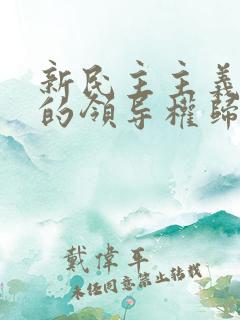 新民主主義
的領导權歸
戴偉平
未经同意禁止转载